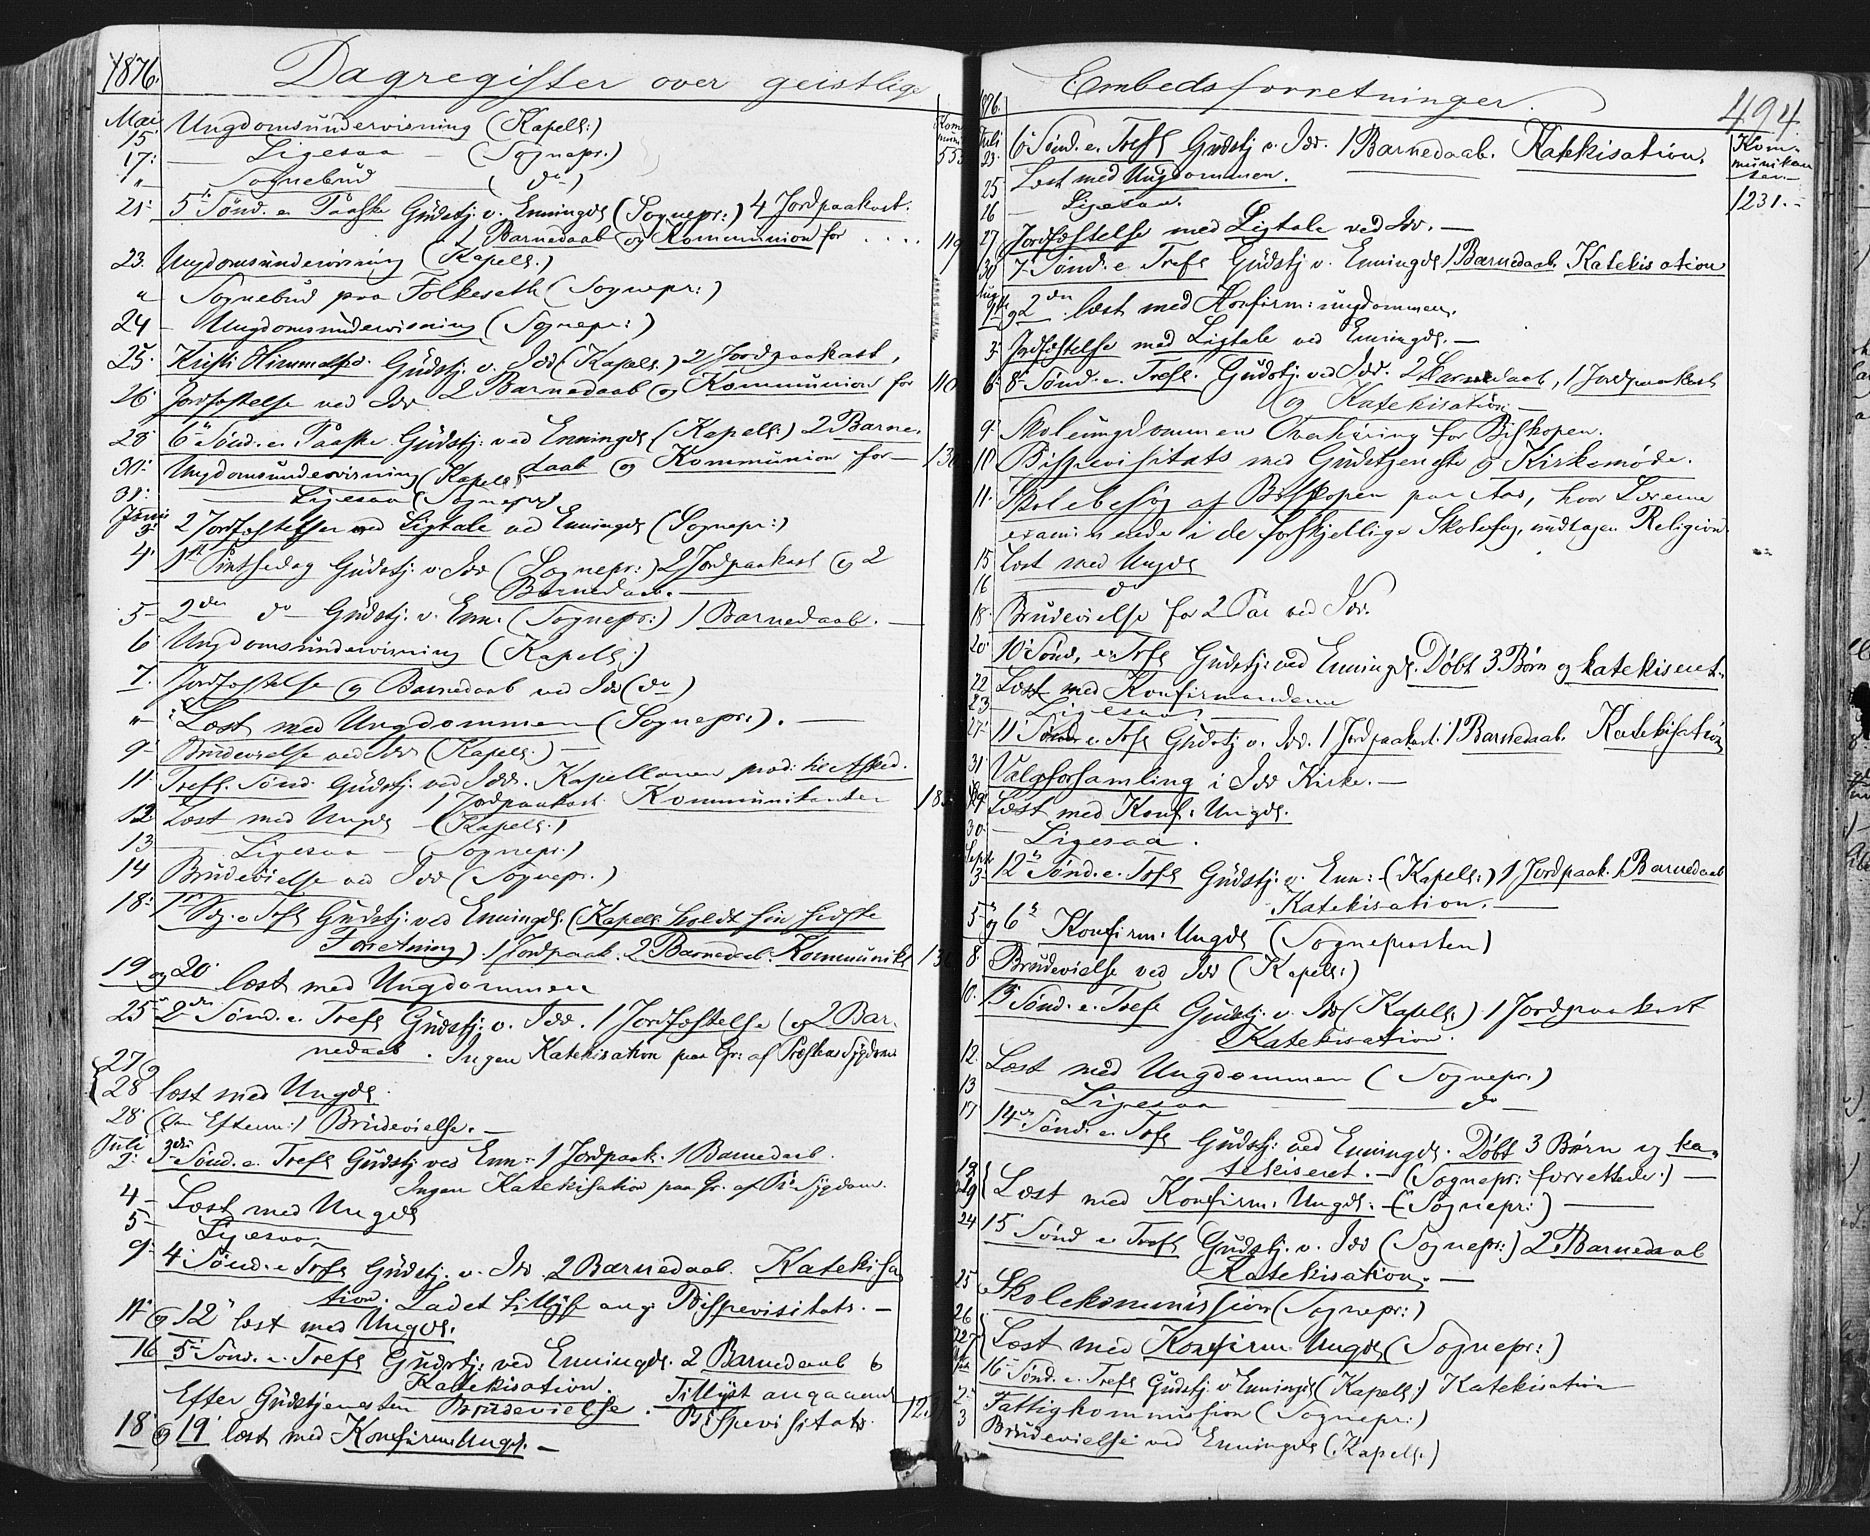 1876. Dagregister over geistlige
Mai Kom-
15. Ungdomsundervisning (Kapell:)
17: — Ligesaa — (Sognepr:)
" Sognebud — (do)
21: 5te Sønd. e. Paaske Gudstj. v. Enningd. (Sognepr:) 4 Jordpaakast.
1 Barnedaab og Kommunion for . . . . 119
23. Ungdomsundervisning (Kapell:)
" Sognebud paa Folkeseth (Sognepr:)
24 – Ungdomsundervisning (Sognepr:)
25. Kristi Himmelfd. Gudstj. v. Idd (Kapell:) 2 Jordpaakast,
2 Barnedaab og Kommunion for 110
26. Jordfæstelse ved Idd.
28 6te Sønd. e. Paaske Gudstj: ved Enningd. (Kapell:) 2 Barne-
daab og Kommunion for — 130
30: Ungdomsundervisning (Kapell:)
31: — Ligesaa (Sognepr:)
Juni
3: 2 Jordfæstelser med Ligtale ved Enningd. (Sognepr:)
4: 1ste Pintsedag Gudstj. v. Idd (Sognepr:) 2 Jordpaakast og 2
Barnedaab. —
5 – 2den do – Gudstj. v. Enn. (Sognepr:) 1 Barnedaab. —
6 Ungdomsundervisning (Kapell:)
7. Jordfæstelse og Barnedaab ved Idd (do)
" – Læst med Ungdommen (Sognepr:). —
9 – Brudevielse ved Idd (Kapell:) —
11: Tref. Sønd. Gudstj. ved Idd. Kapellanen præd: til Afsked.
1 Jordpaakast. Kommunikanter
12. Læst med Ungd. – (Kapell:)
13 — Ligesaa — (Sognepr:)
14 Brudevielse ved Idd (Sognepr:)
18: 1ste Søg. e. Tref. Gudstj: ved Enningd. (Kapell. holdt sin sidste
Forretning) 1 Jordpaak. 2 Barnedaab. Kommunik.
19 og 20 læst med Ungdommen
25 – 2den Sønd. e. Tref. Gudstj. v. Idd. 1 Jordfæstelse og 2 Bar-
nedaab. Ingen Katekisation paa Gr: af Præstens Sygdom
27 og
28 læst med Ungd.
28 (Om Efterm:) Brudevielse. —
Juli
2: 3die Sønd. e. Tref. Gudstj. ved Enn: – 1 Jordpaak. 1 Barnedaab.
Ingen Katekisation paa Gr. af Pr. Sygdom.
4 – Læst med Ungd.
5 – Ligesaa
9 – 4 Sønd. e. Tref. Gudstj. v. Idd 2 Barnedaab. Katekisa-
tion. Ladet tillyse ang. Bispevisitats. —
11 og 12 læst med Ungd.
16 5te Sønd. e. Tref. Gudstj: ved Enningd. 2 Barnedaab &
Katekisation. Tillyst angaaende
Efter Gudstjenesten Brudevielse. Bispevisitats.
18 og 19 læst med Konfirm. Ungd. —
1876. Embedsforretninger. 494.
Juli Kom-
munikan-
ter.
23. 6te Sønd. e. Tref. Gudstj. v. Idd. 1 Barnedaab. Katekisation.
1231. –
25 Læst med Ungdommen.
26 — Ligesaa.
27 Jordfæstelse med Ligtale ved Idd. —
30 7 Sønd. e. Tref. Gudstj v. Enningd. 1 Barnedaab. Katekisation
Aug
1ste og 2den læst med Konfirm: ungdommen.
3 – Jordfæstelse med Ligtale ved Enningd. —
6 – 8 – Sønd. e. Tref. Gudstj. ved Idd. 2 Barnedaab, 1 Jordpaakast
og Katekisation —
9 – Skoleungdommen Overhøring for Biskopen.
10 Bispevisitats med Gudstjeneste og Kirkemøde.
11. Skolebesøg af Biskopen paa Aas, hvor Lærerne
examinerede i de forskjellige Skolefag, undtagen Religion.
15 læst med Ungd.
16 — do
18 – Brudevielse for 2 Par ved Idd.
20 10 – Sønd. e. Tref. Gudstj: ved Enningd. Døbt 3 Børn og katekiseret.
22 Læst med Konfirmanderne
23 — Ligesaa
27 – 11 Sønd. e. Tref. Gudstj v. Idd. 1 Jordpaakast. 1 Barnedaab. Katekisation
31 Valgforsamling i Idd Kirke. —
29 Læst med Konf: Ungd.
30. – Ligesaa.
Sept.
3. 12te Sønd. e. Tref. Gudstj. v. Enn: (Kapell:) 1 Jordpaak. 1 Barnedaab
Katekisation. —
5 og 6te Konfirm: Ungd. (Sognepresten)
8. Brudevielse ved Idd (Kapell:)
10. 13 Sønd. e. Tref. Gudstj. v. Idd (Kapell:) 1 Jordpaakast
Katekisation.
12. Læst med Ungdommen (Sognepr:)
13 — Ligesaa — do —
17 14de Sønd. e. Tref. Gudstj: ved Enningd. Døbt 3 Børn og ka-
tekiseret. – (Sognepr: forrettede.) —
19 Læst med Konfirm: Ungd. – (Sognepr:) —
24 15 Sønd e. Tref. Gudstj. v. Idd (Sognepr:) 2 Barnedaab
Katekisation. —
25 Skolekommission (Sognepr:)
26
27 Læst med Konfirm Ungd. (Sognepr:)
16 – Sønd. e. Tref. Gudstj. v Enningd. (Kapell:) Katekisation
2. Fattigkommission (Sognepr:)
3 Brudevielse ved Enningd. (Kapell.)